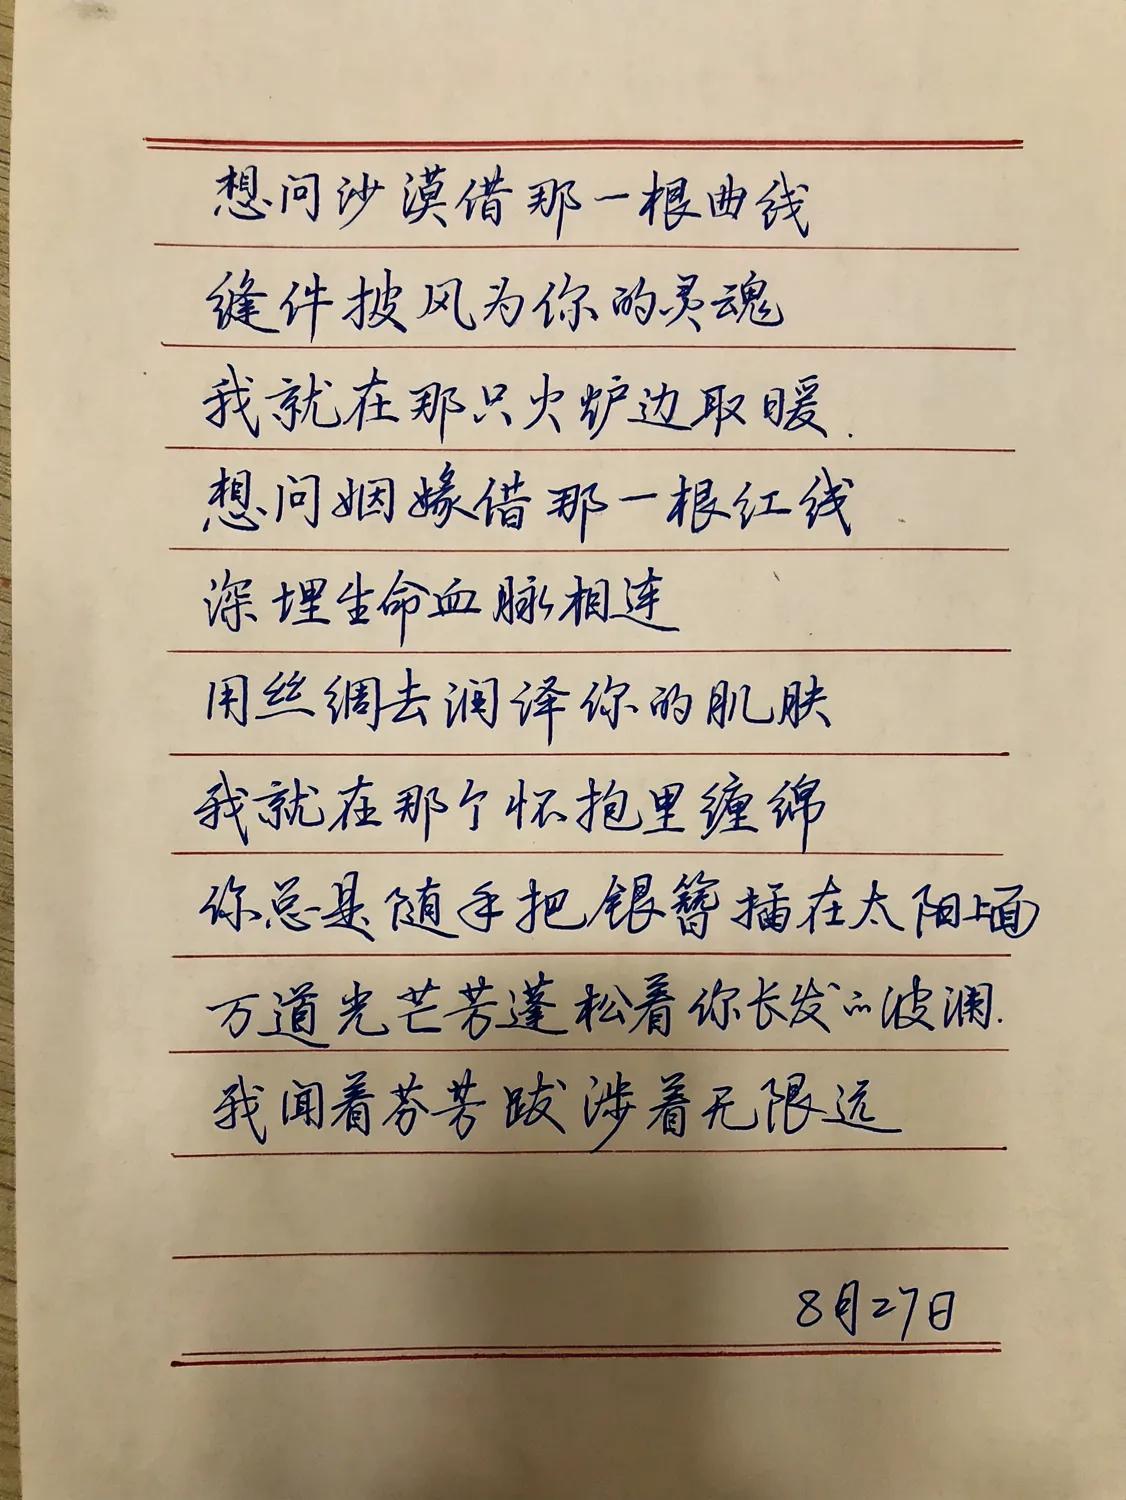 想问沙漠借那一根曲线
缝件披风为你的灵魂
我就在那只火炉边取暖.
想问姻缘借那一根红线
深埋生命血脉相连
用丝绸去润泽你的肌肤
我就在那个怀抱里缠绵
你总是随手把银簪插在太阳上面
万道光芒芳蓬松着你长发的波澜.
我闻着芬芳跋涉着无限远
8月27日